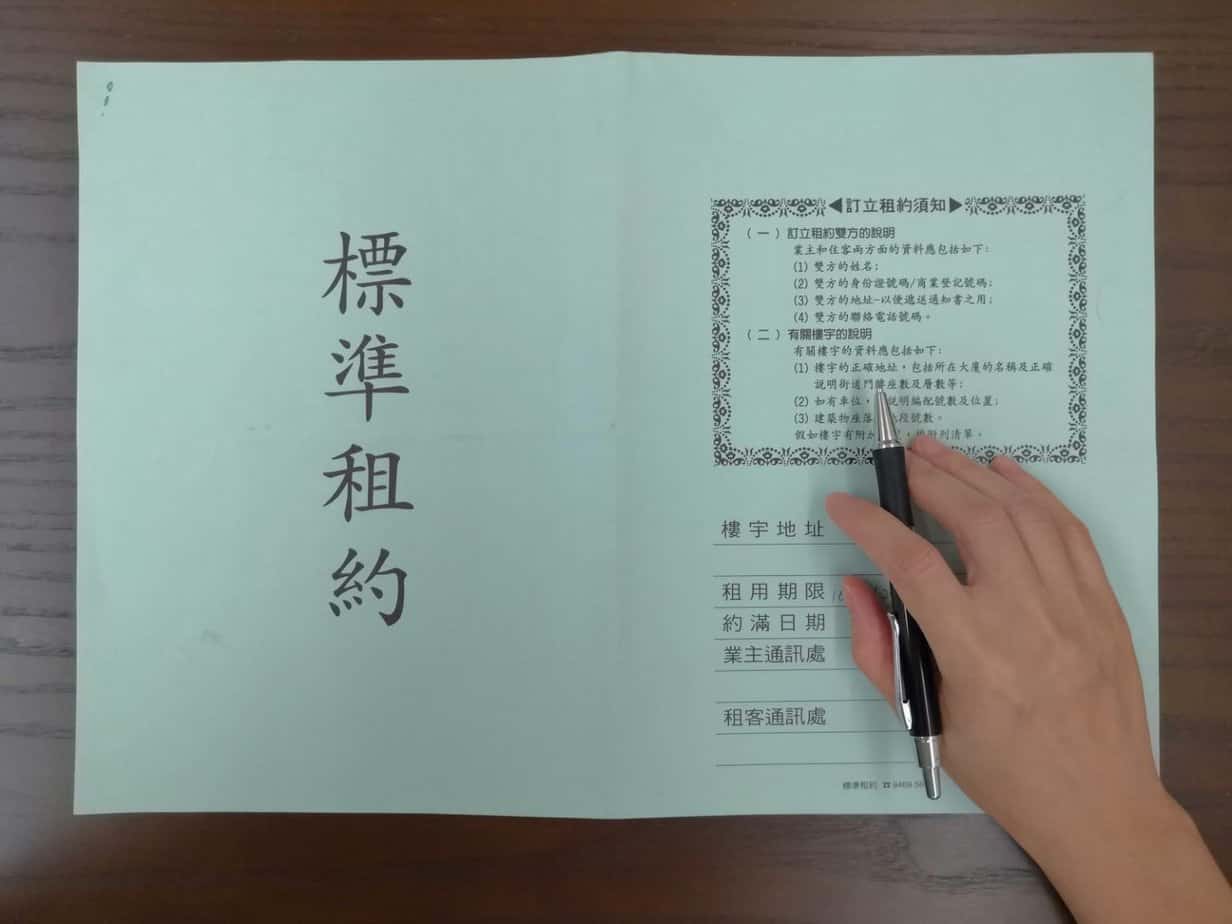 標準租約
訂立租約須知
(一) 訂立租約雙方的說明
業主和住客兩方面的資料應包括如下:
(1) 雙方的姓名;
(2) 雙方的身份證號碼/商業登記號碼;
(3) 雙方的地址-以便遞送通知書之用;
(4) 雙方的聯絡電話號碼。
(二) 有關樓宇的說明
有關樓宇的資料應包括如下:
(1) 樓宇的正確地址,包括所在大廈的名稱及正確
說明街道門牌座數及層數等;
(2) 如有車位,說明編配號數及位置;
(3) 建築物座落 段號數。
假如樓宇有附 ,應附列清單。
樓宇地址
租用期限
約滿日期
業主通訊處
租客通訊處
標準租約 ☎ 9469